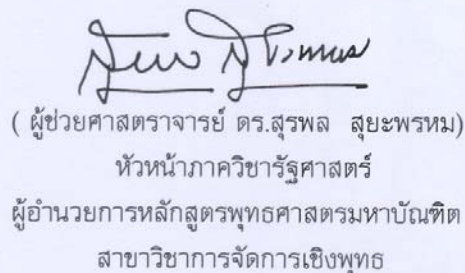 ( ผู้ช่วยศาสตราจารย์ ดร.สุรพล สุยะพรหม)
หัวหน้าภาควิชารัฐศาสตร์
ผู้อำนวยการหลักสูตรพุทธศาสตรมหาบัณฑิต
สาขาวิชาการจัดการเชิงพุทธ